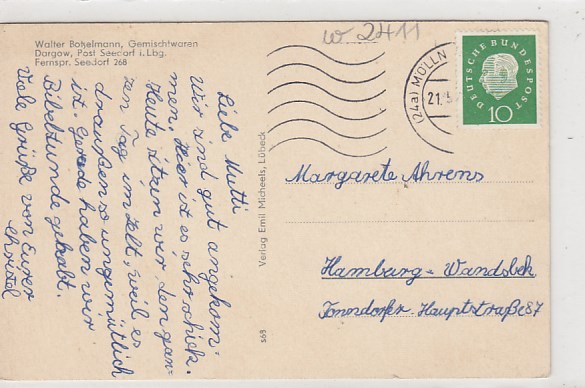 Walter Botzelmann, Gemischtwaren
Dargow, Post Seedorf i. Lbg.
Fernspr. Seedorf 268
w 2411
(24a) MÖLLN
21.
DEUTSCHE BUNDESPOST
10
Liebe Mutti
Wir sind gut angekom-
men. Hier ist es sehr schick.
Heute sitzen wir den gan-
zen Tag im Zelt, weil es
draußen so ungemütlich
ist. Gerade haben wir
Bibelstunde gehabt.
Viele Grüße von Eurer
Christel
Verlag Emil Micheels, Lübeck
569
Margarete Ahrens
Hamburg-Wandsbek
Tonndorfer Hauptstraße 87